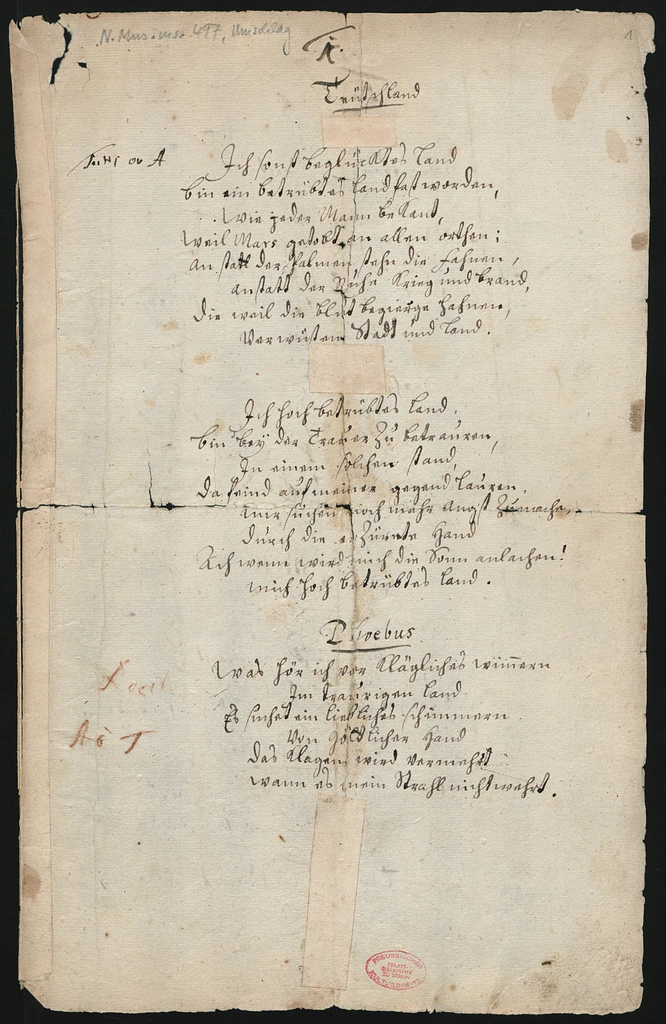 N. Mus. ms. 477, Umschlag
1
1.
Teütschland
Tutti ov A
Ich sonst beglücktes Land
bin ein betrübtes Land fast worden,
Wie jeder Mann bekant,
weil Mars getobt an allen orthen;
an statt der Palmen, stehn die Fahnen,
anstatt der Ruhe Krieg und brand,
die weil die blut begierge Fahnen,
Verwüsten Stadt und Land.
Ich hoch betrübtes Land,
bin bey der Trauer zu betrauren,
In einem solchen stand,
da feind auf meiner gegend lauren,
mir suchen noch mehr angst zumachen
durch die erzürnte Hand
Ach wenn wird mich die Sonn anlachen!
mich hoch betrübtes Land.
Phoebus
Was hör ich vor klägliches wimmern
Im traurigen Land
Es suchet ein liebliches schimmern
Von Göttlicher Hand
das klagen wird vermehrt
wann es mein Strahl nicht wehrt.
PREUSSISCHER
STAATS-
BIBLIOTHEK
ZU BERLIN
KULTURBESITZ